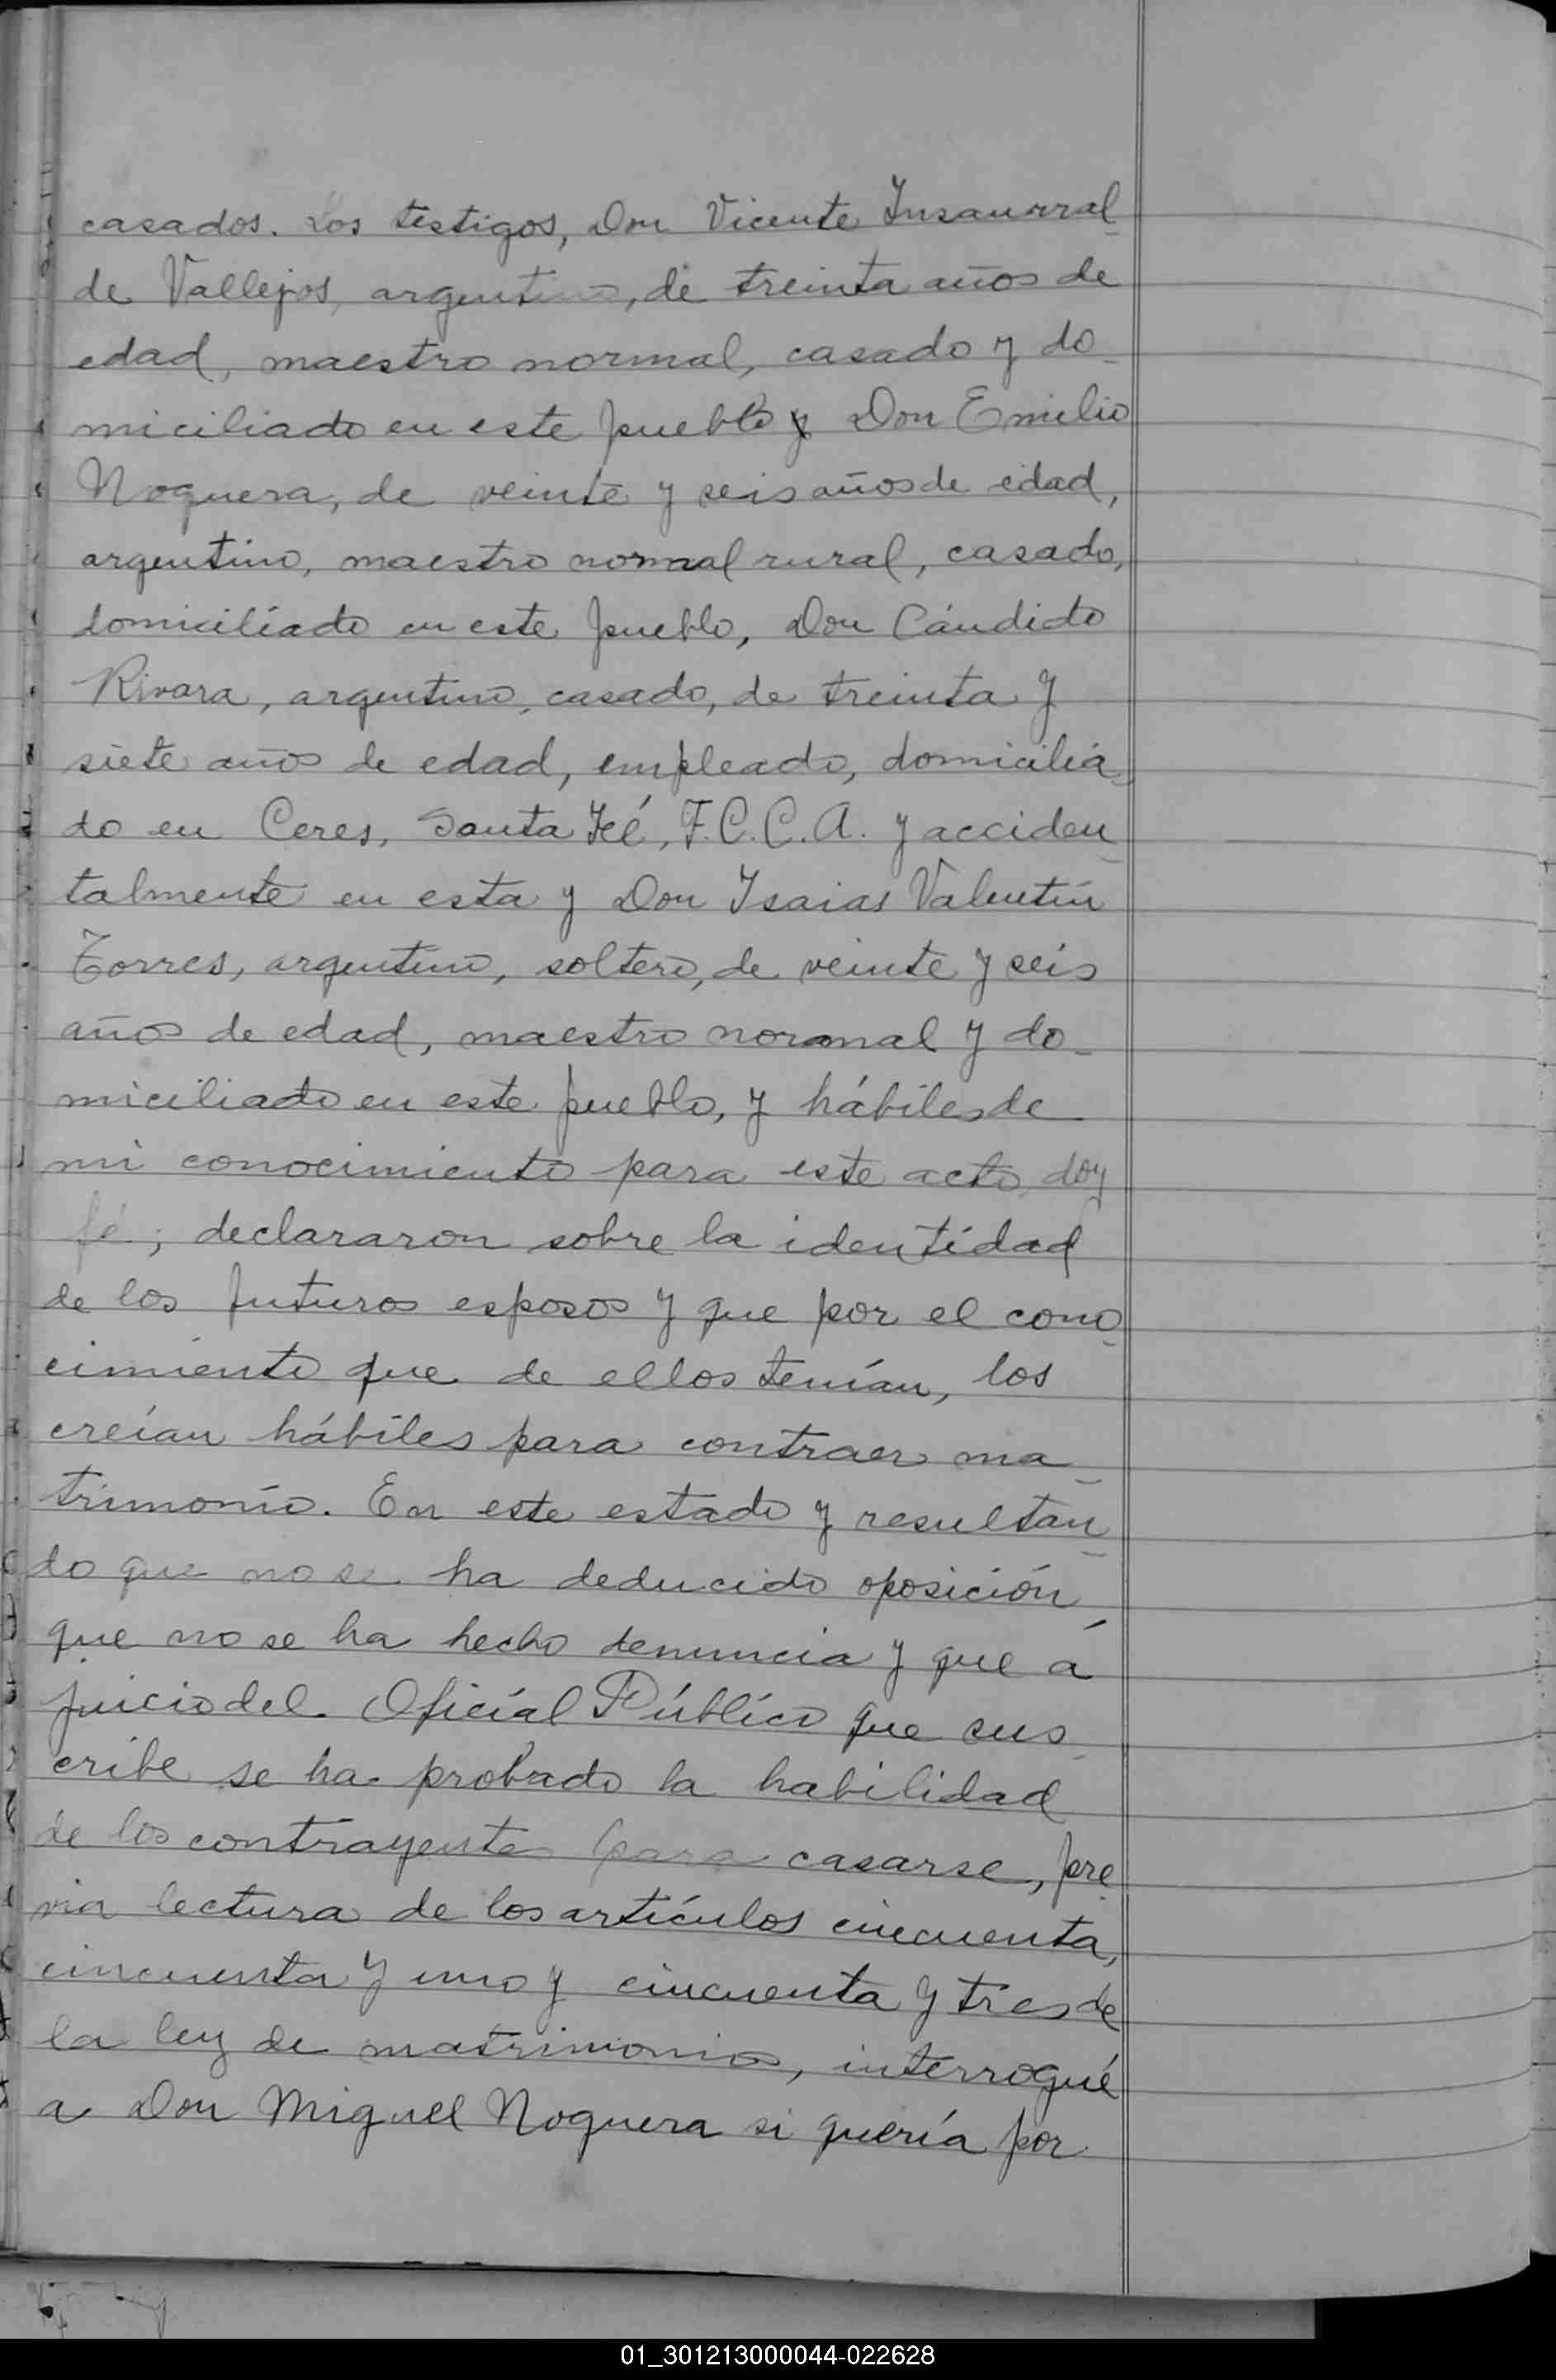 casados. Los testigos, Don Vicente Insaurral-
de Vallejos, argentino, de treinta años de
edad, maestro normal, casado y do-
miciliado en este pueblo y Don Emilio
Noguera, de veinte y seis años de edad,
argentino, maestro normal rural, casado,
domiciliado en este pueblo, Don Cándido
Rivara, argentino, casado, de treinta y
siete años de edad, empleado, domicilia-
do en Ceres, Santa Fé, F.C.C.A. y acciden-
talmente en esta y Don Isaias Valentín
Torres, argentino, soltero, de veinte y seis
años de edad, maestro normal y do-
miciliado en este pueblo, y hábiles de
mi conocimiento para este acto, doy
fé; declararon sobre la identidad
de los futuros esposos y que por el cono-
cimiento que de ellos tenían, los
creían hábiles para contraer ma-
trimonio. En este estado y resultan-
do que no se ha deducido oposición,
que no se ha hecho denuncia y que á
juicio del Oficial Público que sus-
cribe se ha probado la habilidad
de los contrayentes para casarse, pre-
via lectura de los artículos cincuenta,
cincuenta y uno y cincuenta y tres de
la ley de matrimonios, interrogué
a Don Miguel Noguera si quería por
01_301213000044-022628